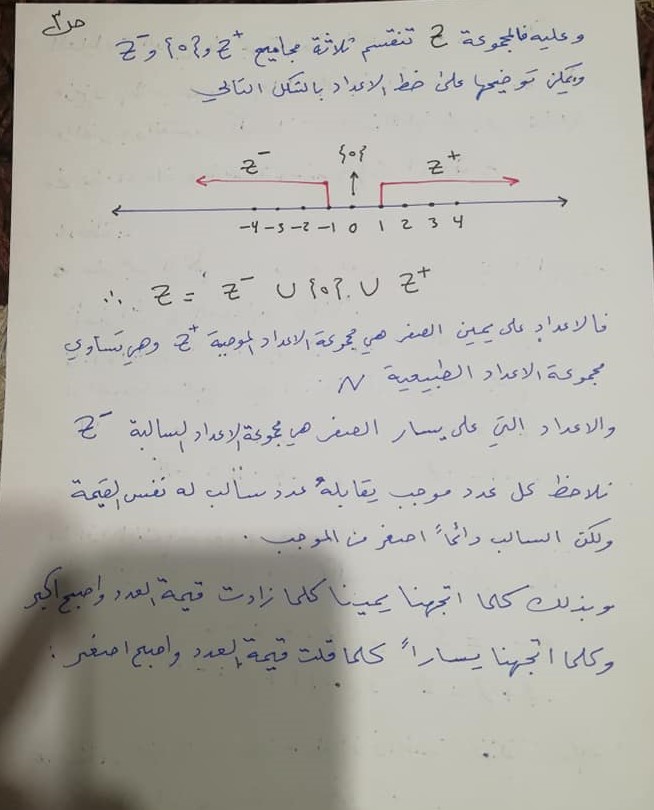 ص٣
وعليه فالمجموعة Z تنقسم ثلاثة مجاميع Z⁺ و{0} و Z⁻
ويمكن توضيحها على خط الاعداد بالشكل التالي
Z⁻ {0} Z⁺
-4 -3 -2 -1 0 1 2 3 4
∴ Z = Z⁻ ∪ {0} ∪ Z⁺
فالاعداد على يمين الصفر هي مجموعة الاعداد الموجبة Z⁺ وهي تساوي
مجموعة الاعداد الطبيعية N
والاعداد التي على يسار الصفر هي مجموعة الاعداد السالبة Z⁻
نلاحظ كل عدد موجب يقابله عدد سالب له نفس القيمة
ولكن السالب دائماً اصغر من الموجب .
وبذلك كلما اتجهنا يمينا كلما زادت قيمة العدد واصبح اكبر
وكلما اتجهنا يساراً كلما قلت قيمة العدد واصبح اصغر :